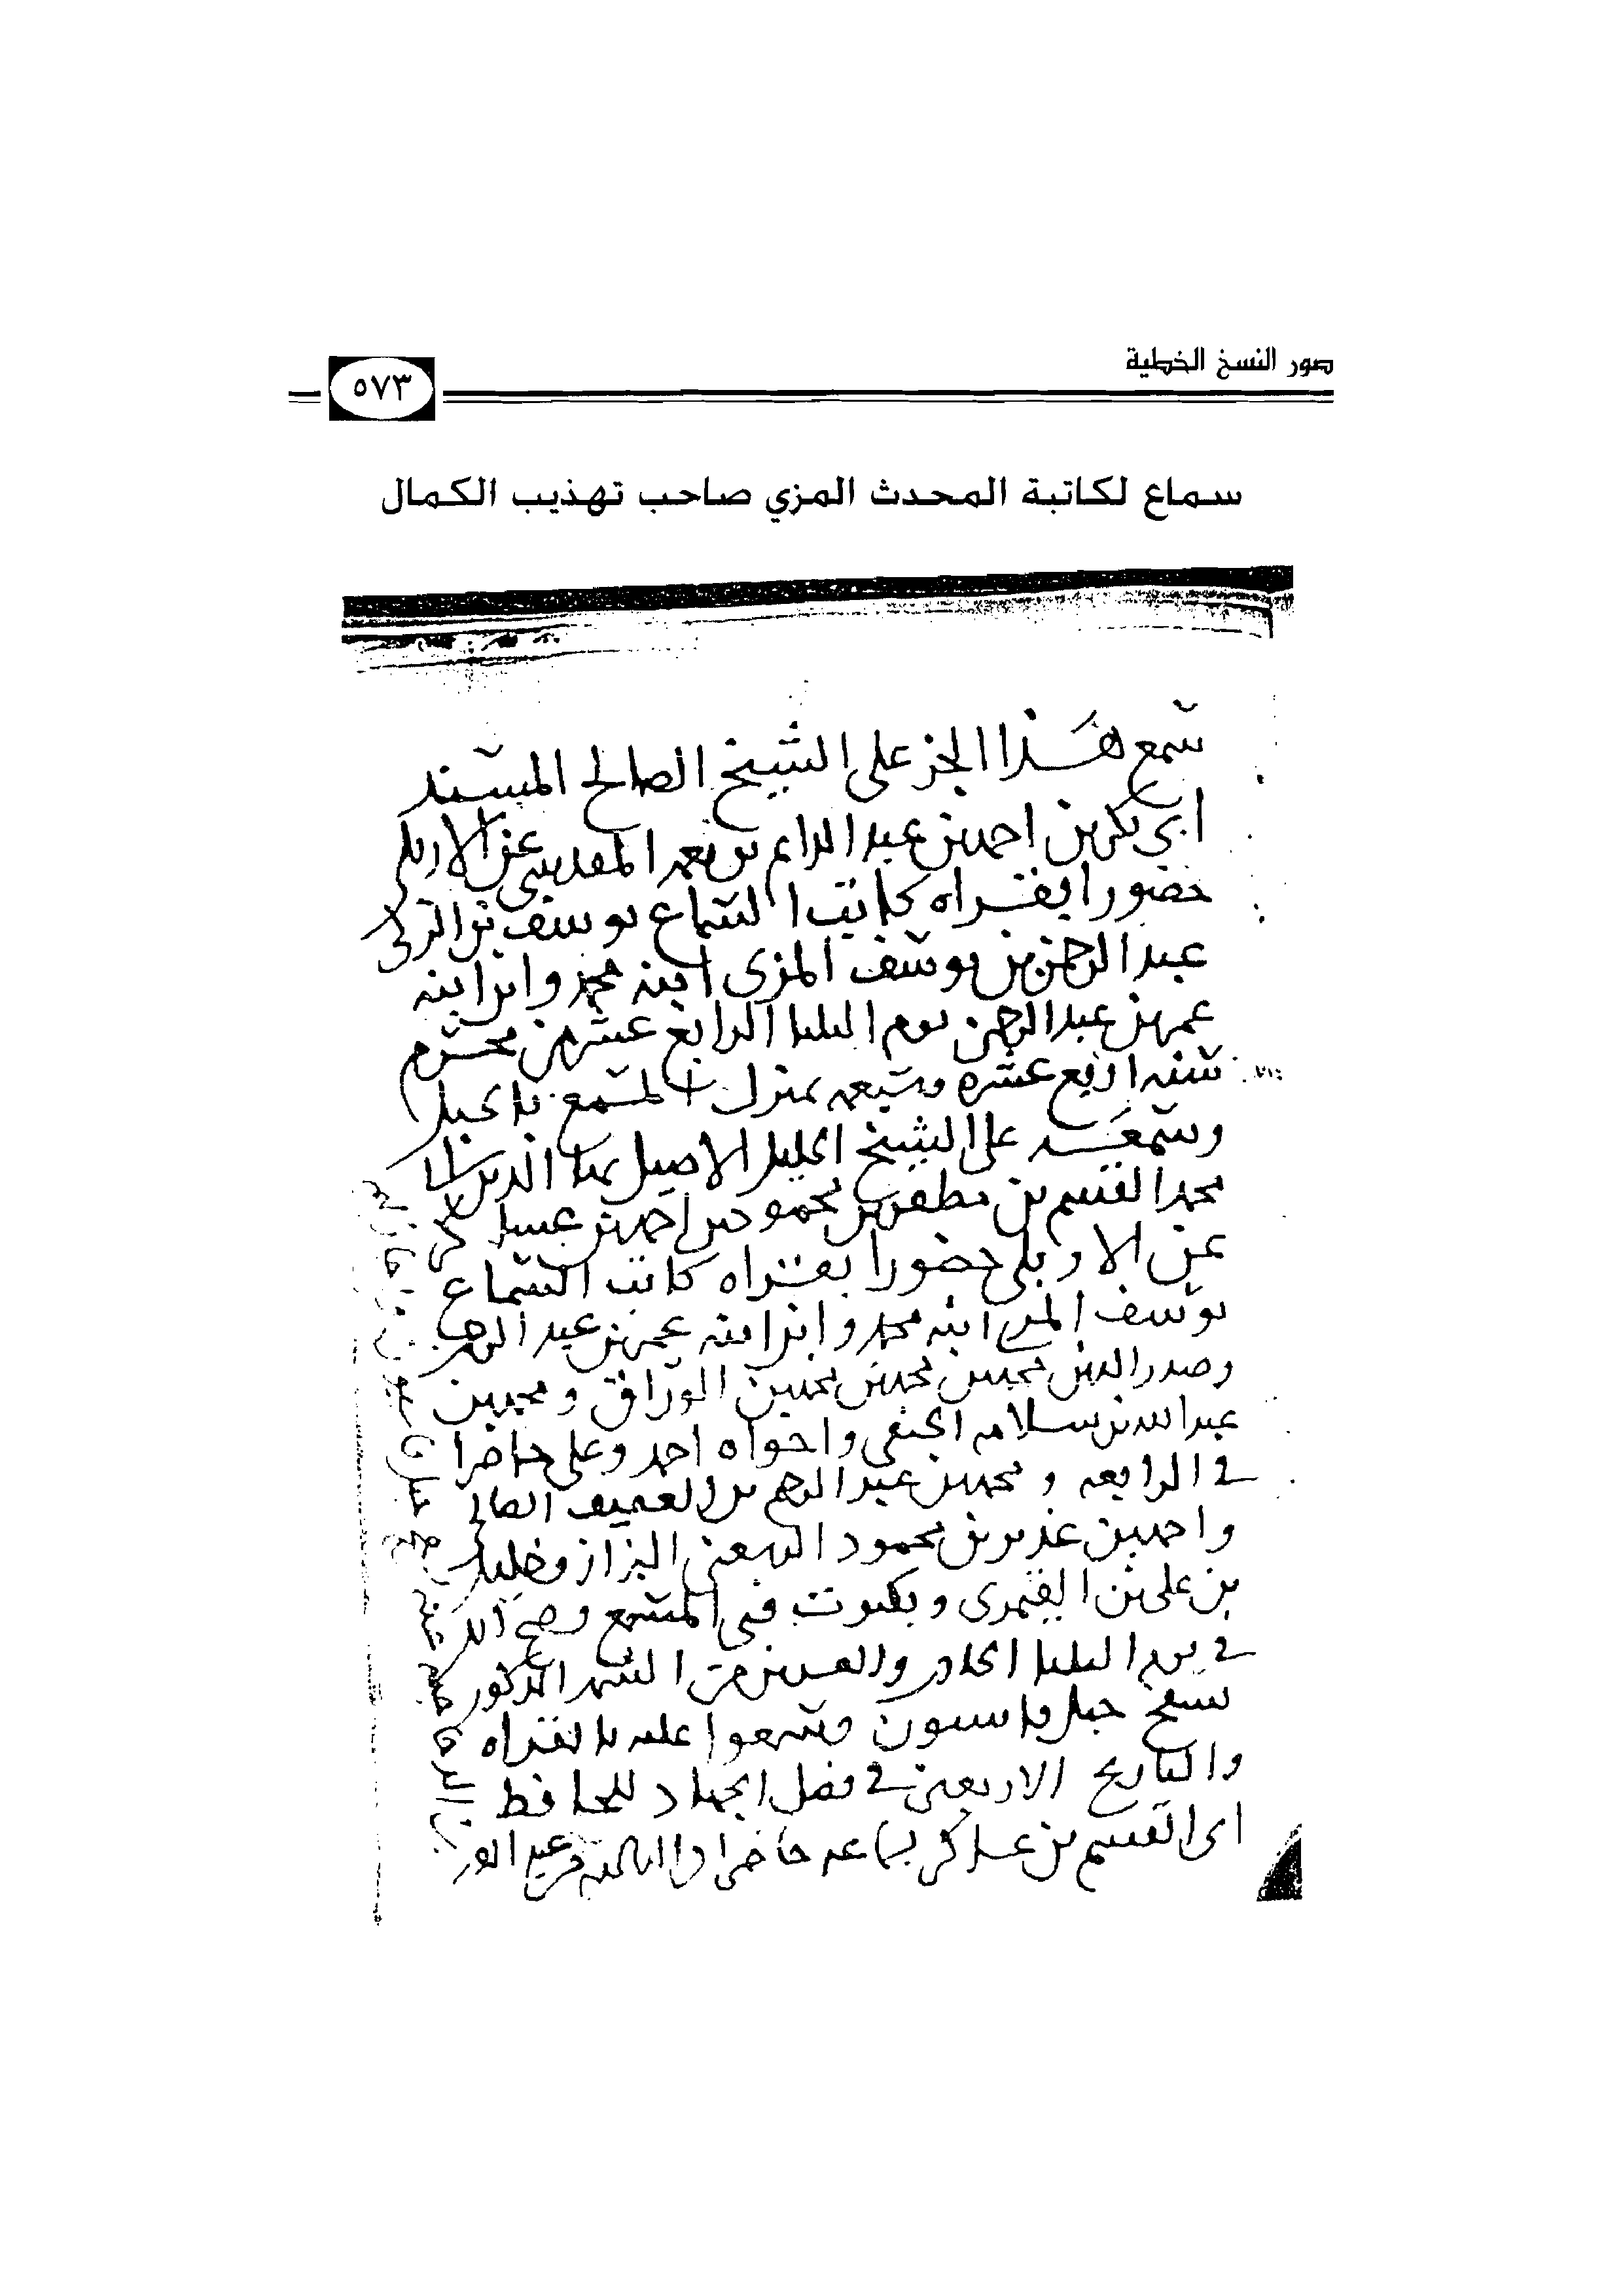 صور النسخ الخطية
٥٧٣
سماع لكاتبة المحدث المزي صاحب تهذيب الكمال
سمع هذا الجز على الشيخ الصالح المسند
ابي بكر بن احمد بن عبد الدايم بن نعمه المقدسي عن الاربلي
حضورا بقراه كاتب السماع يوسف بن الزكي
عبد الرحمن بن يوسف المزي ابنه محمد وابن ابنه
عمر بن عبد الرحمن يوم الثلثا الرابع عشر من محرم
سنه اربع عشره وسبعمه بمنزل المسمع بالجبل
وسمعه على الشيخ الجليل الاصيل بها الدين
محمد القسم بن مظفر بن محمود بن احمد بن عساكر
عن الاربلي حضورا بقراه كاتب السماع
يوسف المزي ابنه محمد وابن ابنه عمر بن عبد الرحمن
وصدر الدين محمد بن محمد بن محمد بن الوراق ومحمد بن
عبد الله بن سلامه الحنفي واخواه احمد وعلي حاضرا
في الرابعه ومحمد بن عبد الرحيم بن العفيف
واحمد بن عزيز بن محمود البزاز وخليل
بن علي بن القيمري وبكتوت فتى المسمع وصح ذلك
في يوم الثلثا الحادي والعشرين من الشهر المذكور
بسفح جبل قاسيون وسمعوا عليه بالقراه
والتاريخ الاربعين في فضل الجهاد للحافظ
ابي القسم بن عساكر بسماعه حاضرا